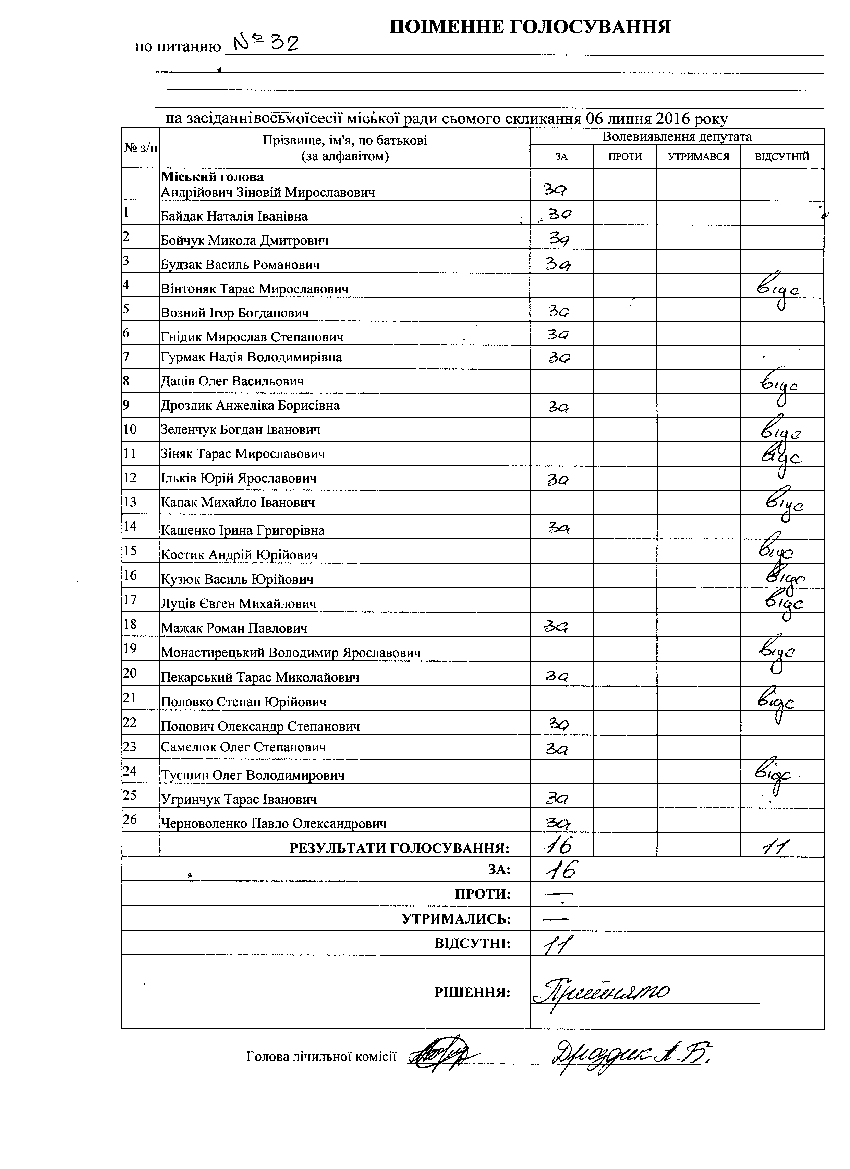 ПОІМЕННЕ ГОЛОСУВАННЯ
по питанню №32
на засіданнівосьмоїсесії міської ради сьомого скликання 06 липня 2016 року
№ з/п Прізвище, ім'я, по батькові (за алфавітом) Волевиявлення депутата
ЗА ПРОТИ УТРИМАВСЯ ВІДСУТНІЙ
Міський голова
Андрійович Зіновій Мирославович за
1 Байдак Наталія Іванівна за
2 Бойчук Микола Дмитрович за
3 Будзак Василь Романович за
4 Вінтоняк Тарас Мирославович відс
5 Возний Ігор Богданович за
6 Гнідик Мирослав Степанович за
7 Гурмак Надія Володимирівна за
8 Даців Олег Васильович відс
9 Дроздик Анжеліка Борисівна за
10 Зеленчук Богдан Іванович відс
11 Зіняк Тарас Мирославович відс
12 Ільків Юрій Ярославович за
13 Капак Михайло Іванович відс
14 Кашенко Ірина Григорівна за
15 Костик Андрій Юрійович відс
16 Кузюк Василь Юрійович відс
17 Луців Євген Михайлович відс
18 Мажак Роман Павлович за
19 Монастирецький Володимир Ярославович відс
20 Пекарський Тарас Миколайович за
21 Половко Степан Юрійович відс
22 Попович Олександр Степанович за
23 Самелюк Олег Степанович за
24 Тусшин Олег Володимирович відс
25 Угринчук Тарас Іванович за
26 Черноволенко Павло Олександрович за
РЕЗУЛЬТАТИ ГОЛОСУВАННЯ: 16 11
ЗА: 16
ПРОТИ: —
УТРИМАЛИСЬ: —
ВІДСУТНІ: 11
РІШЕННЯ: Прийнято
Голова лічильної комісії Дроздик А.Б.